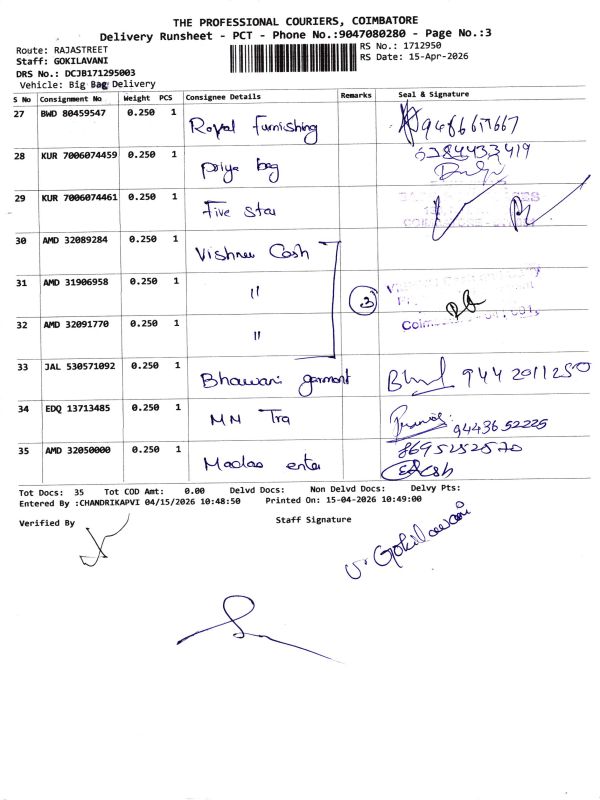 THE PROFESSIONAL COURIERS, COIMBATORE
Delivery Runsheet - PCT - Phone No.:9047080280 - Page No.:3
Route: RAJASTREET
RS No.: 1712950
Staff: GOKILAVANI
RS Date: 15-Apr-2026
DRS No.: DCJB171295003
Vehicle: Big Bag Delivery
S No Consignment No Weight PCS Consignee Details Remarks Seal & Signature
27 BWD 80459547 0.250 1 Royal Furnishing
28 KUR 7006074459 0.250 1 Priya bag
29 KUR 7006074461 0.250 1 Five star
30 AMD 32089284 0.250 1 Vishnu Cash
31 AMD 31906958 0.250 1 " 3
32 AMD 32091770 0.250 1 "
33 JAL 530571092 0.250 1 Bhawani garment 944 2011250
34 EDQ 13713485 0.250 1 MN Tra 9443652225
35 AMD 32050000 0.250 1 Madras enter 8695252570
Tot Docs: 35 Tot COD Amt: 0.00 Delvd Docs: Non Delvd Docs: Delvy Pts:
Entered By :CHANDRIKAPVI 04/15/2026 10:48:50 Printed On: 15-04-2026 10:49:00
Verified By Staff Signature
V. Gokilavani